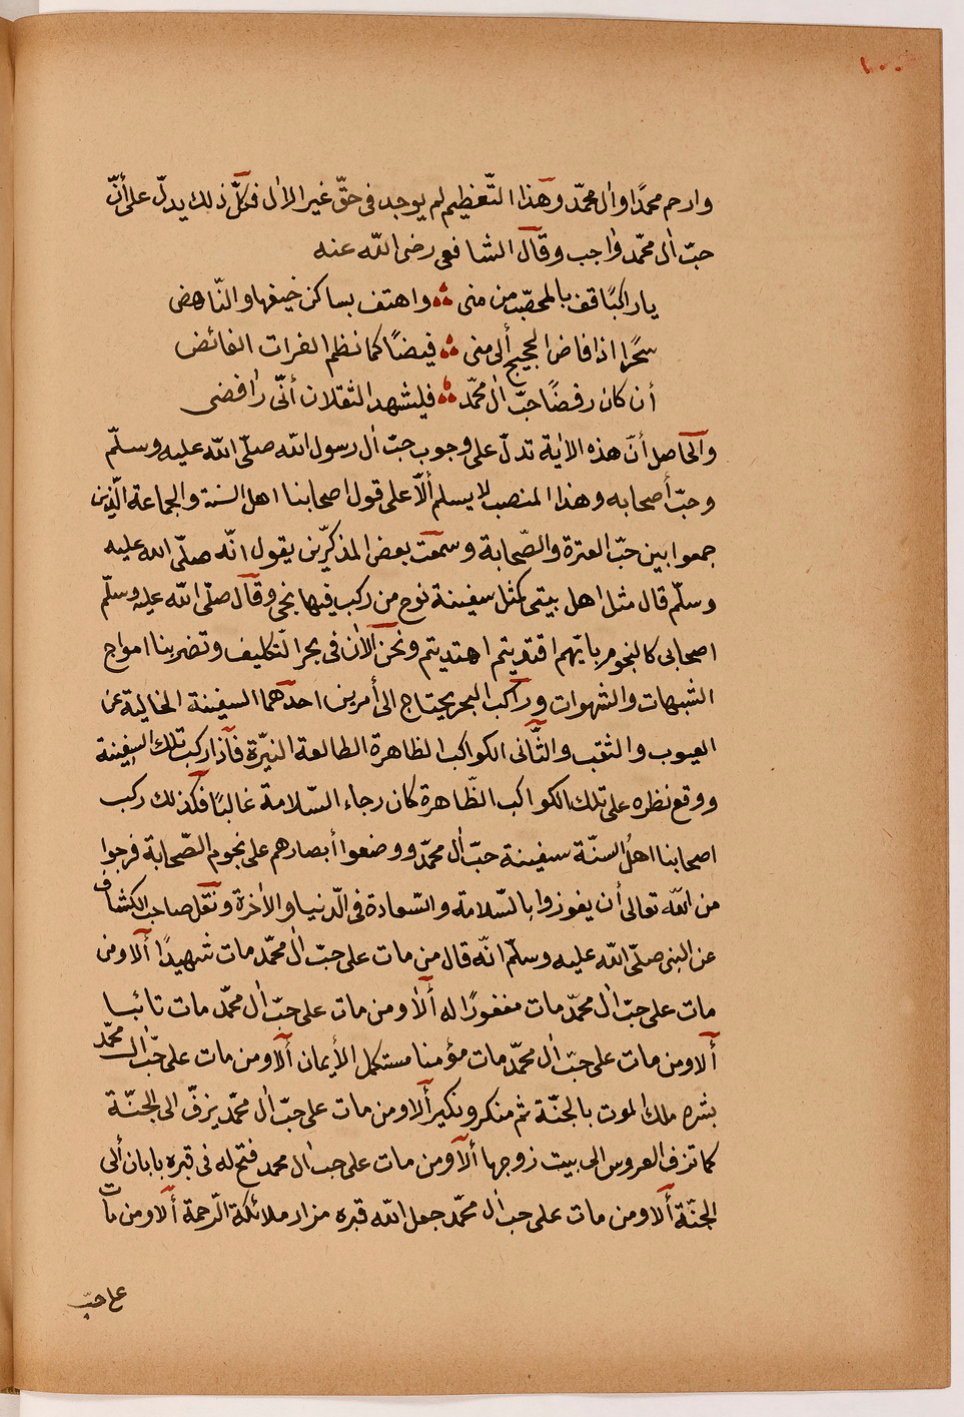 ١٠٠
وارحم محمّدًا وآل محمّد وهذا التّعظيم لم يوجد فى حقّ غير الاٰل فكلّ ذلك يدلّ على أنّ
حبّ اٰل محمّد واجب وقال الشافعى رضى اللّه عنه
يا راكبًا قف بالمحصّب من منى ؞ واهتف بساكن خيفها والنّاهض
سحَرًا اذا فاض الحجيج ألى منى ؞ فيضًا كما نظم الفرات الفائض
أن كان رفضًا حبّ اٰل محمّد ؞ فليشهد الثقلان أنّى رافضى
والحاصل أنّ هذه الاٰية تدلّ على وجوب حبّ اٰل رسول اللّه صلّى اللّه عليه وسلّم
وحبّ أصحابه وهذا المنصب لا يسلم ألّا على قول اصحابنا اهل السنة والجماعة الّذين
جمعوا بين حبّ العترة والصّحابة وسمعت بعض المذكّرين يقول انّه صلّى الله عليه
وسلّم قال مثل اهل بيتى كمثل سفينة نوح من ركب فيها نجى وقال صلّى اللّه عليه وسلّم
اصحابى كالنجوم بايّهم اقتديتم اهتديتم ونحن الاٰن فى بحر التّكليف وتضربنا امواج
الشبهات والشهوات وراكب البحر يحتاج الى أمرين احدهما السفينة الخالية عن
العيوب والثقب والثّانى الكواكب الظاهرة الطالعة النيّرة فاذا ركب تلك السفينة
ووقع نظره على تلك الكواكب الظّاهرة كان رجاء السّلامة غالبًا فكذلك ركب
اصحابنا اهلُ السنّة سفينة حبّ اٰل محمّد ووضعوا أبصارهم على نجوم الصّحابة فرجوا
من اللّه تعالى أن يفوزوا بالسّلامة والسّعادة فى الدّنيا والاٰخرة ونقل صاحب الكشاف
عن النبى صلّى اللّه عليه وسلّم انّه قال من مات على حبّ اٰل محمّد مات شهيدًا ألا ومن
مات على حبّ اٰل محمّد مات مغفورًا له ألا ومن مات على حبّ اٰل محمّد مات تائبا
ألا ومن مات على حبّ اٰل محمّد مات مؤمنا مستكمل الأيمان ألا ومن مات على حبّ اٰل محمّد
بشره ملك الموت بالجنّة ثم منكر ونكير ألا ومن مات على حبّ اٰل محمّد يزفّ الى الجنّة
كما تزف العروس الى بيت زوجها ألا ومن مات على حب اٰل محمد فتح له فى قبره بابان ألى
الجنّة ألا ومن مات على حب اٰل محمّد جعل اللّه قبره مزار ملائكة الرّحمة ألا ومن مات
على حبّ